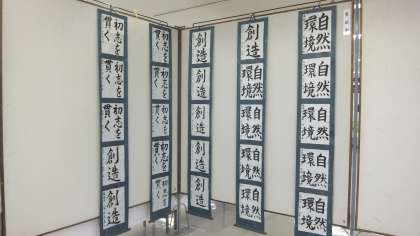 自然
環境
自然
環境
自然
環境
自然
環境
自然
環境
創造
自然
環境
自然
環境
自然
環境
自然
環境
創造
創造
創造
創造
創造
初志を
貫く
初志を
貫く
初志を
貫く
初志を
貫く
初志を
貫く
初志を
貫く
初志を
貫く
初志を
貫く
創造
創造